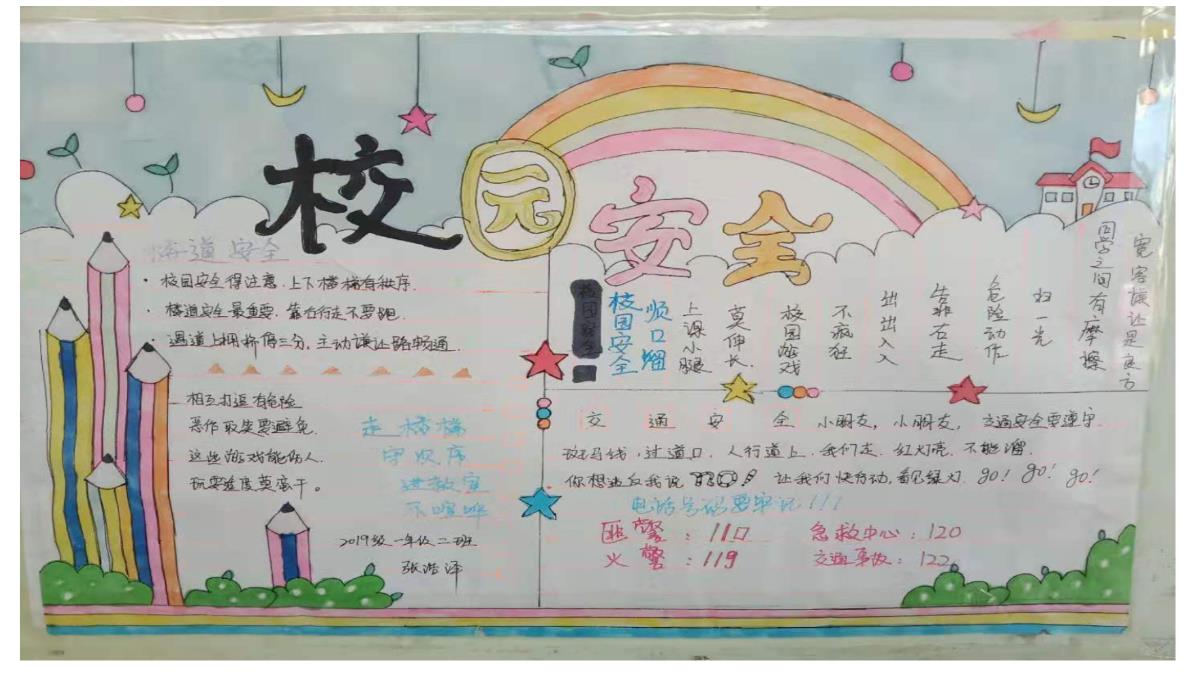 校园安全
楼道安全
· 校园安全得注意.上下楼梯有秩序.
· 楼道安全最重要.靠右行走不要跑.
· 过道上拥挤停三分.主动谦让路畅通.
相互打逗有危险
恶作取笑要避免.
这些游戏能伤人.
玩耍适度莫蛮干。
走楼梯
守次序
进教室
不喧哗
2019级一年级二班
张浩泽
校园安全
校园安全
顺口溜
上课小腿
莫伸长.
校园游戏
不疯狂
出出入入
靠右走
危险动作
扫一光
同学之间有摩擦
宽容谦让是良方
交通安全 小朋友,小朋友,交通安全要遵守.
斑马线,过道口.人行道上.我们走.红灯亮.不能溜.
你想 我说 让我们快行动,看见绿灯 go! go! go!
电话号码要牢记!!!
匪警:110 急救中心:120
火警:119 交通事故:122